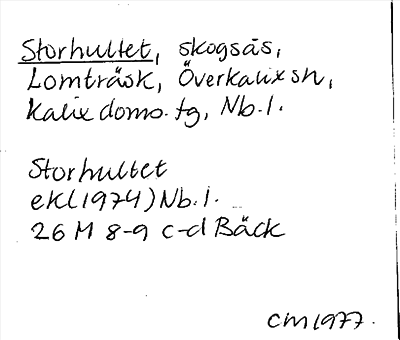 Storhultet, skogsås,
Lomträsk, Överkalix sn,
Kalix doms. tg, Nb. l.
Storhultet
ekl (1974) Nb. l.
26 M 8-9 c-d Bäck
CM 1977.